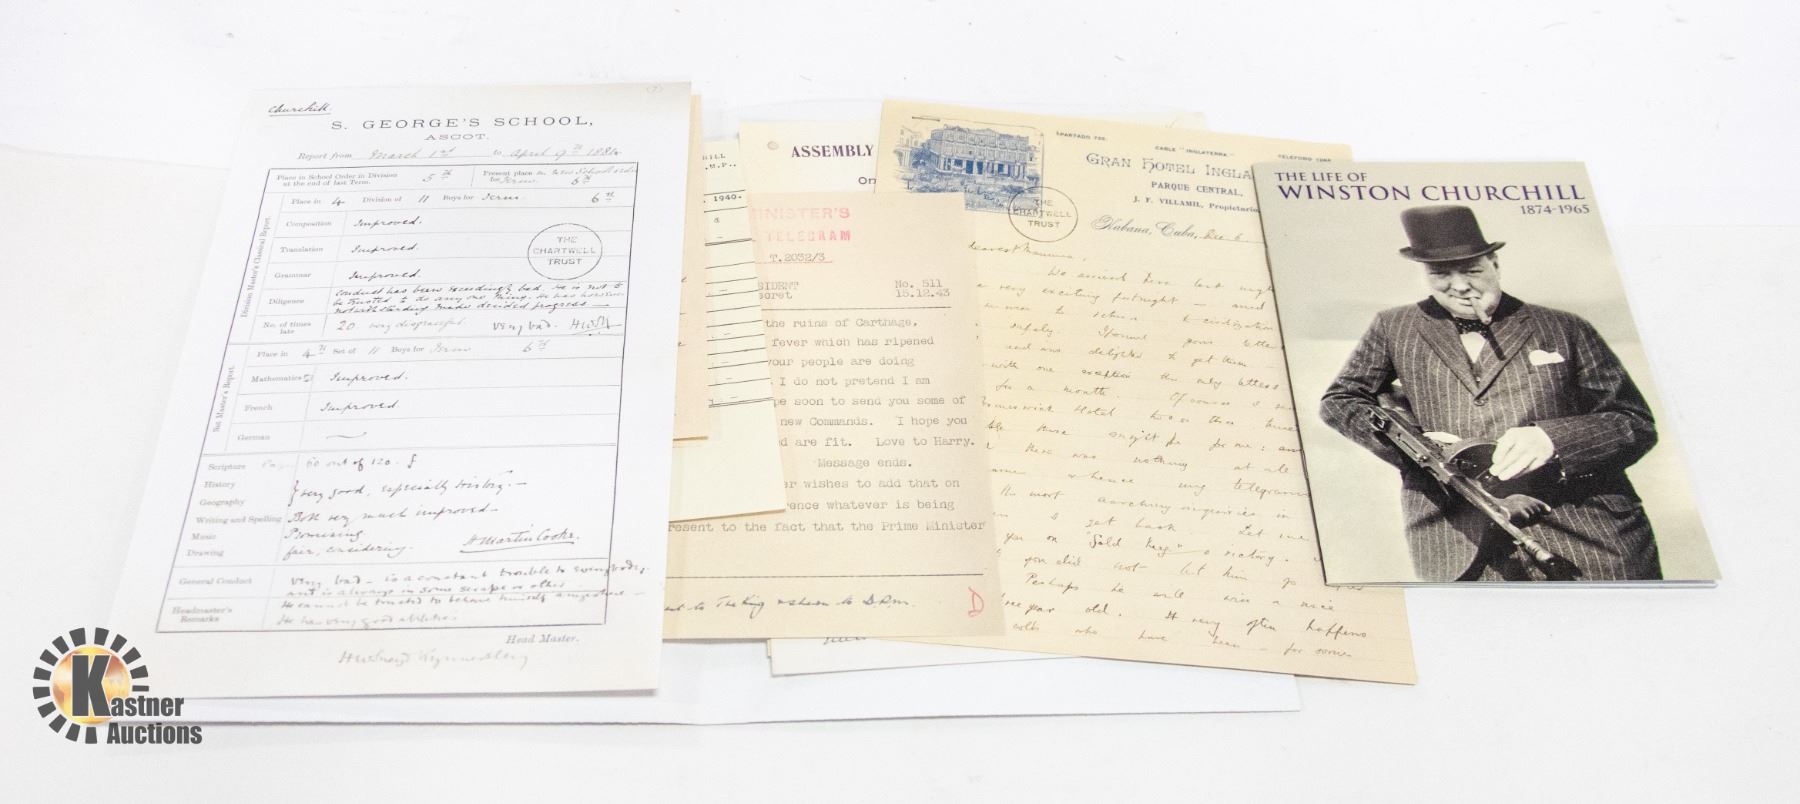 Churchill.
S. GEORGE'S SCHOOL,
ASCOT.
Report from March 1st to April 9th 1884
Place in School Order in Division
at the end of last Term. 5th
Present place in School order
for Term. 6th
Division Master's Classical Report.
Place in 4 Division of 11 Boys for Term 6th
Composition Improved.
Translation Improved.
Grammar Improved.
Diligence Conduct has been exceedingly bad. He is not to
be trusted to do any one thing. He has however
notwithstanding made decided progress
No. of times
late 20 very disgraceful. Very bad. HWSK
Set Master's Report.
Place in 4th Set of 11 Boys for Term 6th
Mathematics Improved.
French Improved.
German
Scripture 60 out of 120.
History
Geography very good, especially history.
Writing and Spelling Both very much improved
Music Promising
Drawing fair, considering.
H Martin Cooke.
General Conduct very bad - is a constant trouble to everybody
and is always in some scrape or other.
Headmaster's
Remarks He cannot be trusted to behave himself anywhere
He has very good abilities.
Head Master.
THE
CHARTWELL
TRUST
HILL
M.P.,
1940.
ASSEMBLY
On
INISTER'S
TELEGRAM
T.2032/3
SIDENT No. 511
ecret 15.12.43
the ruins of Carthage,
fever which has ripened
your people are doing
I do not pretend I am
pe soon to send you some of
new Commands. I hope you
d are fit. Love to Harry.
Message ends.
er wishes to add that on
rence whatever is being
resent to the fact that the Prime Minister
to The King
D
APARTADO
CABLE "INGLATERRA"
TELEFONO
GRAN HOTEL INGLA
PARQUE CENTRAL,
J. F. VILLAMIL, Propietario
Habana, Cuba, Dec 6.
THE
CHARTWELL
TRUST
dearest Mamma,
We arrived here last night
a very exciting fortnight - and
to return to civilization
safely. I found your letters
and am delighted to get them
with one exception the only letters
for a month. Of course I
there might be for me: and
there was nothing at all
whence my telegrams
the most searching inquiries in
I get back. Let me
you on "Gold Key" s victory.
you did not let him go
Perhaps he will win a nice
year old. It very often happens
colts who have been - for some
THE LIFE OF
WINSTON CHURCHILL
1874-1965
Kastner
Auctions